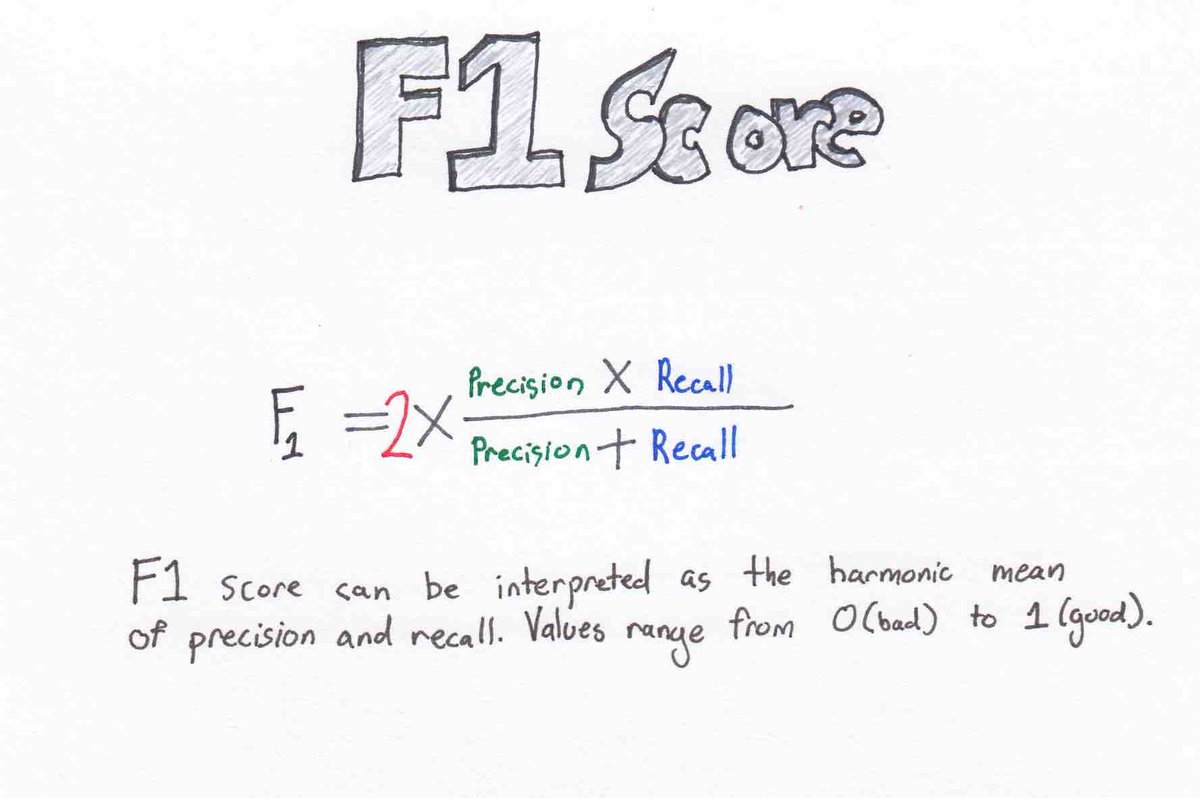 F1 Score
F₁ = 2 × Precision × Recall
Precision + Recall
F1 score can be interpreted as the harmonic mean
of precision and recall. Values range from 0 (bad) to 1 (good).